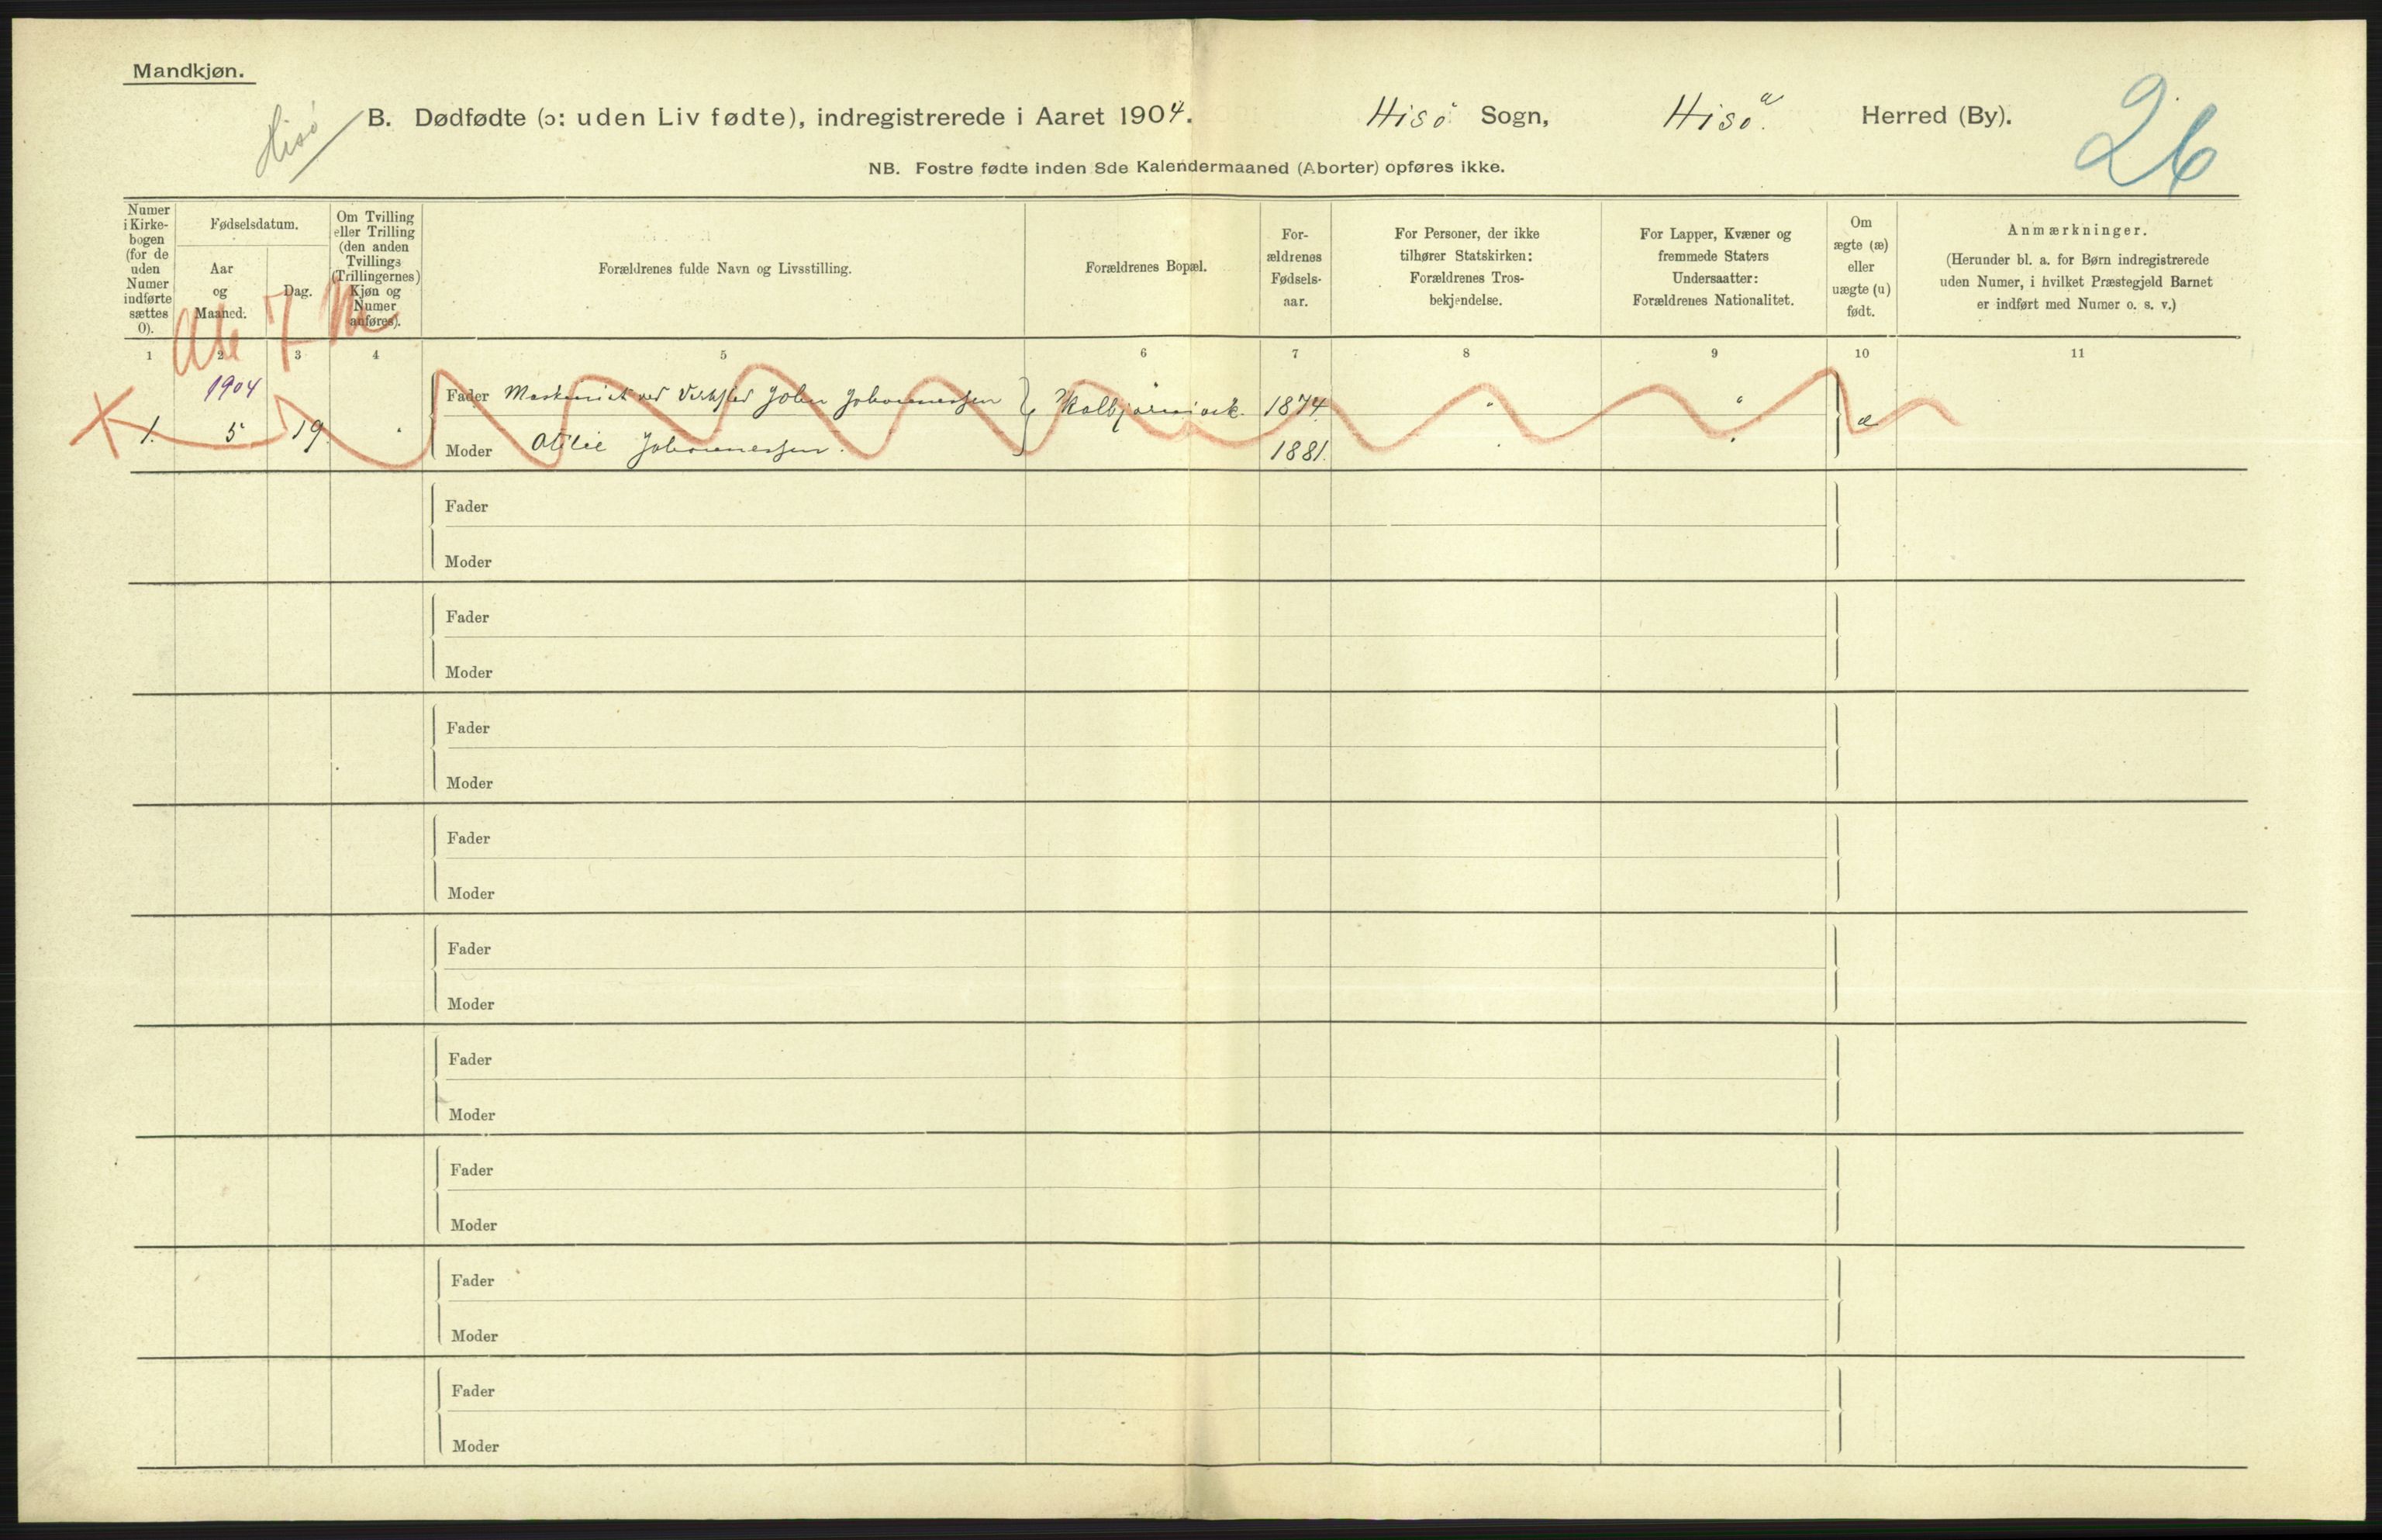 Mandkjøn.
Hisö
B. Dødfødte (ɔ: uden Liv fødte), indregistrerede i Aaret 1904. Hisö Sogn, Hisö Herred (By).
26
NB. Fostre fødte inden 8de Kalendermaaned (Aborter) opføres ikke.
Numer
i Kirke-
bogen
(for de
uden
Numer
indførte
sættes
0).
Fødselsdatum.
Aar
og
Maaned.
Dag.
Om Tvilling
eller Trilling
(den anden
Tvillings
(Trillingernes)
Kjøn og
Numer
anføres).
Forældrenes fulde Navn og Livsstilling.
Forældrenes Bopæl.
For-
ældrenes
Fødsels-
aar.
For Personer, der ikke
tilhører Statskirken:
Forældrenes Tros-
bekjendelse.
For Lapper, Kvæner og
fremmede Staters
Undersaatter:
Forældrenes Nationalitet.
Om
ægte (æ)
eller
uægte (u)
født.
Anmærkninger.
(Herunder bl. a. for Børn indregistrerede
uden Numer, i hvilket Præstegjeld Barnet
er indført med Numer o. s. v.)
7 m
1 2 3 4 5 6 7 8 9 10 11
1904
Fader Maskinist ved John Johannessen 1874
1. 5 19 " " " æ
Moder Otilie Johannessen. 1881.
Fader
Moder
Fader
Moder
Fader
Moder
Fader
Moder
Fader
Moder
Fader
Moder
Fader
Moder
Fader
Moder
Fader
Moder